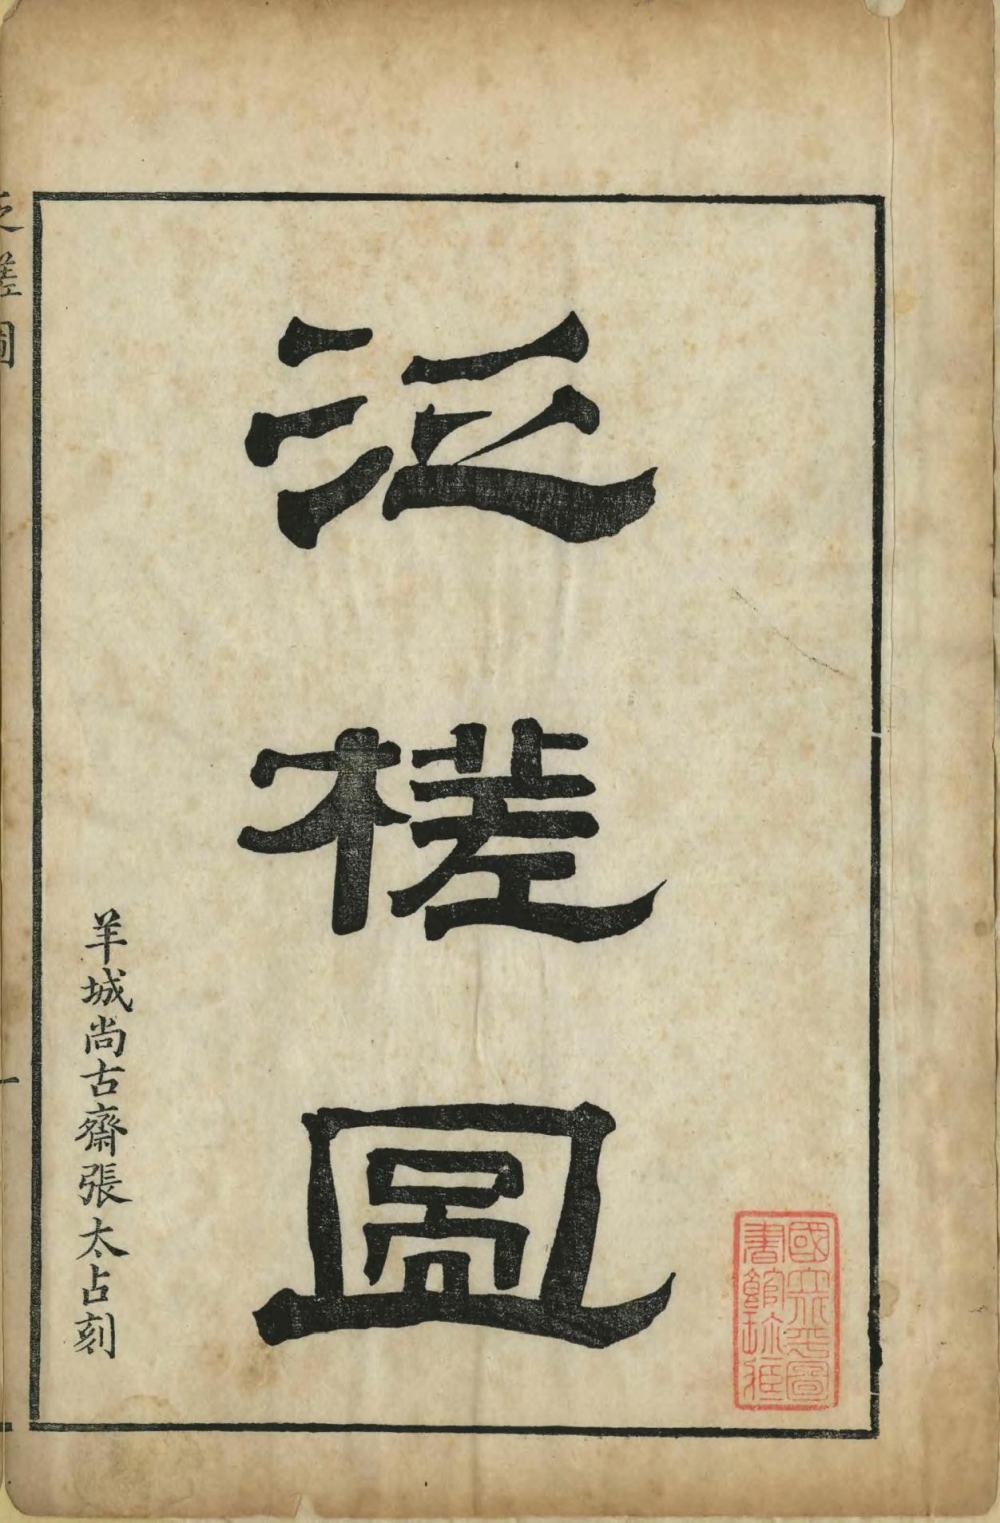 國立北平圖
書館珍藏
泛槎圖
羊城尚古齋張太占刻
泛槎圖
一